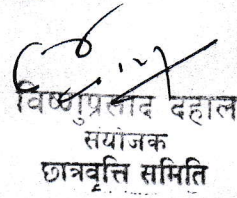 विष्णुप्रसाद दहाल
संयोजक
छात्रवृत्ति समिति